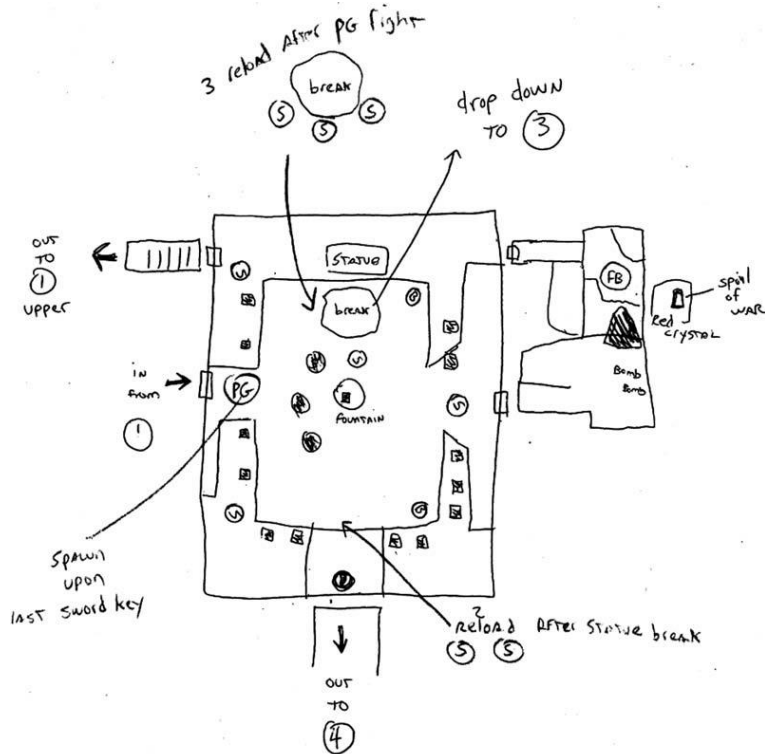 3 reload After PG fight
break
S S S
drop down
TO 3
OUT
TO
1
upper
STATUE
S
break
FB
spoil
of
WAR
Red
CRYSTAL
in
from
1
PG
S
S
FOUNTAIN
Bomb
Bomb
S
Spawn
upon
last sword key
2
Reload After Statue break
S S
OUT
TO
4